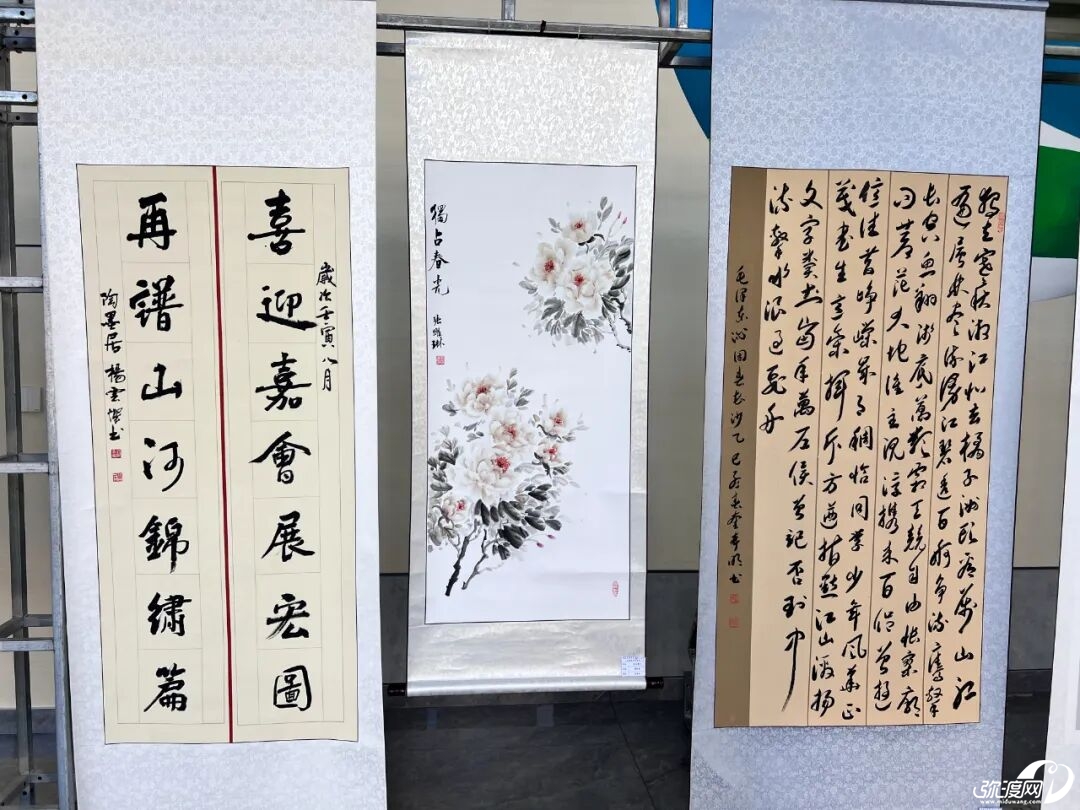 歲次壬寅八月
喜迎嘉會展宏圖
再譜山河錦繡篇
陶墨居 楊雲 书
獨占春光
独立寒秋湘江北去橘子洲頭看萬山红
遍層林尽染漫江碧透百舸争流鷹擊
长空魚翔浅底萬類霜天競自由怅寥廓
问苍茫大地谁主沉浮携来百侣曾遊
憶往昔峥嵘歲月稠恰同学少年風華正
茂書生意氣揮斥方遒指點江山激扬
文字糞土當年萬户侯曾記否到中
流擊水浪遏飛舟
毛泽东沁园春长沙乙巳 书
弥渡网
www.miduwang.com